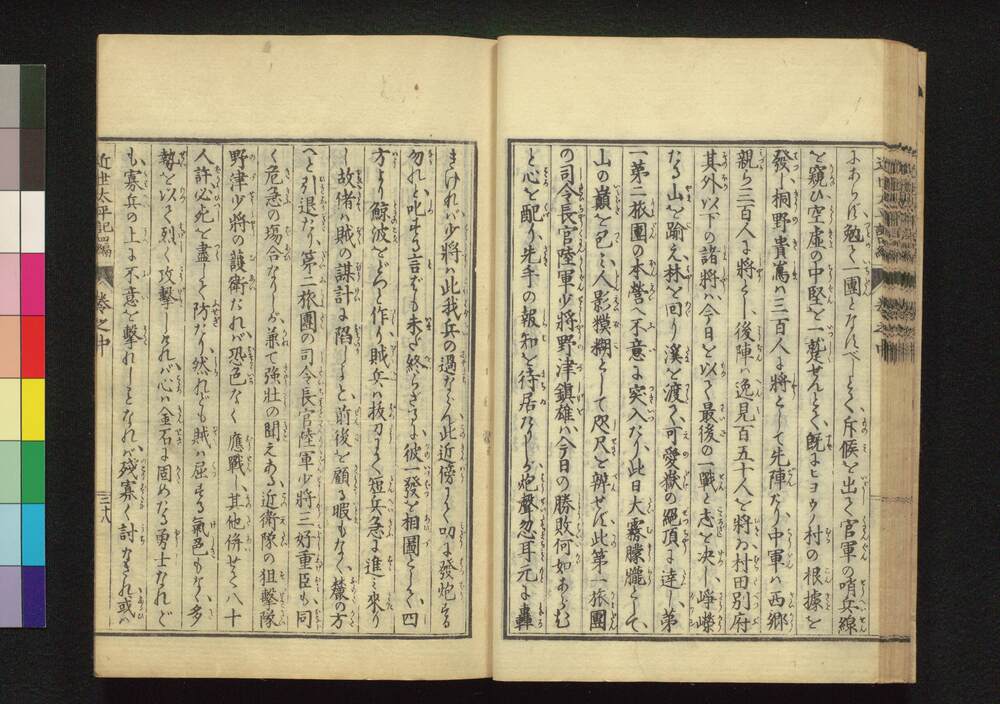 にあらバ勉て一團となれべしとて斥候を出して官軍の哨兵線
を窺ひ空虚の中堅を一蹴せんとて既にヒョウノ村の根據を
發し桐野貴蔦ハ三百人に將として先陣たり中軍ハ西郷
親ら三百人に將とし後陣ハ逸見百五十人を將ゐ村田別府
其外以下の諸將ハ今日を以て最後の一戰と志を决し崢嶸
たる山を踰え林を回り溪を渡りて可愛嶽の絶頂に達し第
一第二旅團の本營へ不意に突入たり此日大霧朦朧として
山の巓を包ミ人影糢糊として咫尺を辨ぜず此第一旅團
の司令長官陸軍少將野津鎮雄ハ今日の勝敗何如あらむ
と心を配り先手の報知を待居たりしが炮聲忽耳元に轟
きけれバ少將ハ此我兵の過ならん此近傍にて叨に發炮する
勿れと叱する言葉も未だ終らざるに彼一發を相圖として四
方より鯨波をどつと作り賊兵ハ抜刀にて短兵急に進ミ來り
し故偖ハ賊の謀計に陷しと前後を顧る暇もなく麓の方
へと引退たり第二旅團の司令長官陸軍少將三好重臣も同
く危急の塲合なりしが兼て強壮の聞えある近衛隊の狙撃隊
野津少將の護衛たれバ恐色なく應戰し其他併せて八十
人許必死を盡して防たり然れども賊ハ屈する氣色もなく多
勢を以て烈く攻撃しけれバ心ハ金石に固めたる勇士なれど
も寡兵の上に不意を撃れしことなれバ残寡く討なされ或ハ
近世太平記四編
卷之中
三十八